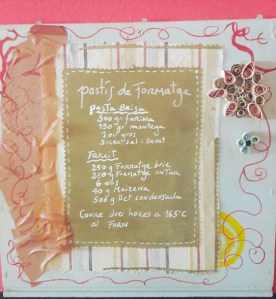 pastís de Formatge
pasta Brisa
300 gr. farina
150 gr mantega
1 ou gros
sucre, sal i llevat
Farcit
250 g Formatge brie
250 g Formatge
6 ous
40 g Maizena
500 g llet condensada
Coure dos hores a 165°C
al FORN